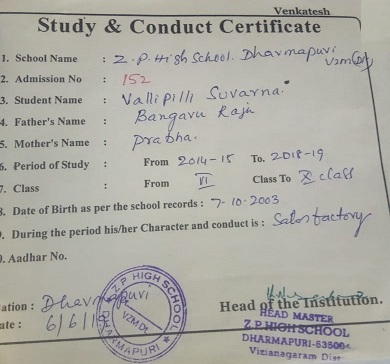 Venkatesh
Study & Conduct Certificate
1. School Name : Z.P. High School. Dharmapuri Vzm(Dt)
2. Admission No : 152
3. Student Name : Vallipilli Suvarna.
4. Father's Name : Bangaru Raju
5. Mother's Name : Prabha.
6. Period of Study : From 2014-15 To. 2018-19
7. Class : From VI Class To X class
8. Date of Birth as per the school records : 7-10-2003
9. During the period his/her Character and conduct is : Satisfactory
0. Aadhar No.
ation : Dharmapuri
ate : 6/6/19
Z.P. HIGH SCHOOL
VZM Dt.
DHARMAPURI
Head of the Institution.
HEAD MASTER
Z.P. HIGH SCHOOL
DHARMAPURI-53500
Vizianagaram Dist